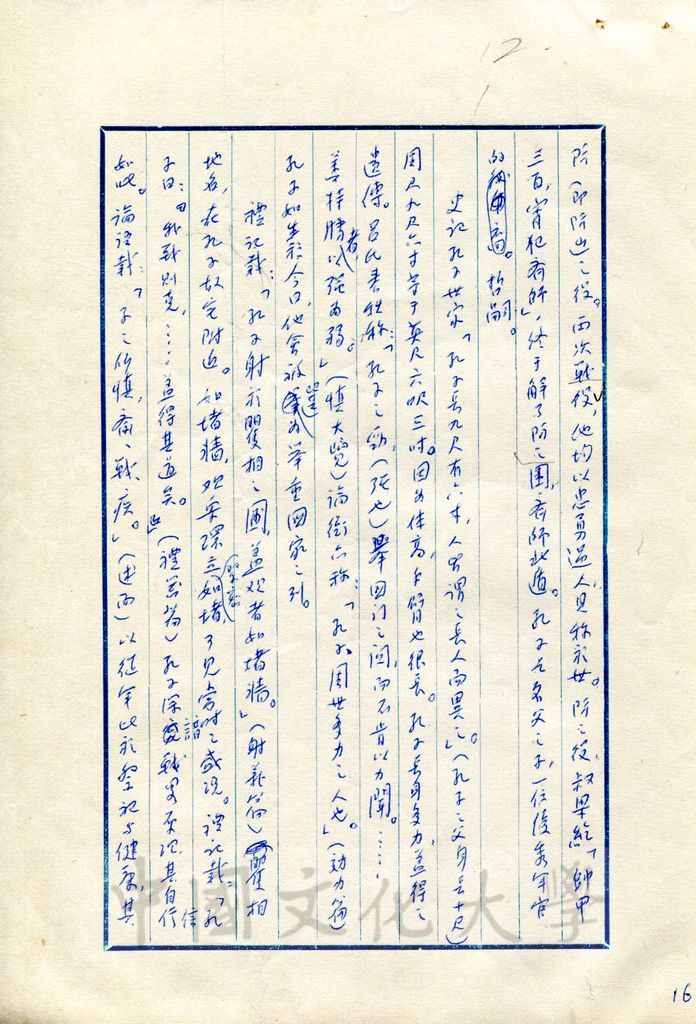 12.
防（即防山之役。兩次戰役，他均以忠勇過人，見称於世。防之役，叔梁紇「帥甲
三百，宵犯齊師」，终于解了防之圍，齊師北遁。孔子是名父之子，一位後秀年官
的 裔。哲嗣。
史记孔子世家「孔子長九尺有六寸，人皆謂之長人而異之」。（孔子之父身長十尺）
周尺九尺六寸等于英尺六呎三吋。因为体高，手臂也很長。孔子長身多力，盖得之
遗傳。吕氏春秋称：「孔子之勁，（强也）舉国门之関，而不肯以力聞。……
善持勝者，以强为弱。」（慎大覽）論衡亦称：「孔子，周世多力之人也。」（効力篇）
孔子如生於今日，他會被選为举重国家之列。
禮记載：「孔子射於矍相之圃，盖观者如堵牆。」（射義篇）矍相
地名，在孔子故宅附近。如堵牆，观众环立如堵，可见當时之盛况。禮记載：「孔
子曰：我戰則克，……盖得其道矣。」（禮器篇）孔子深諳戰畧原理，其自信
如此。論语載：「子之所慎，齋、戰、疾。」（述而）以战争比於祭祀与健康，其
中國文化大學
16